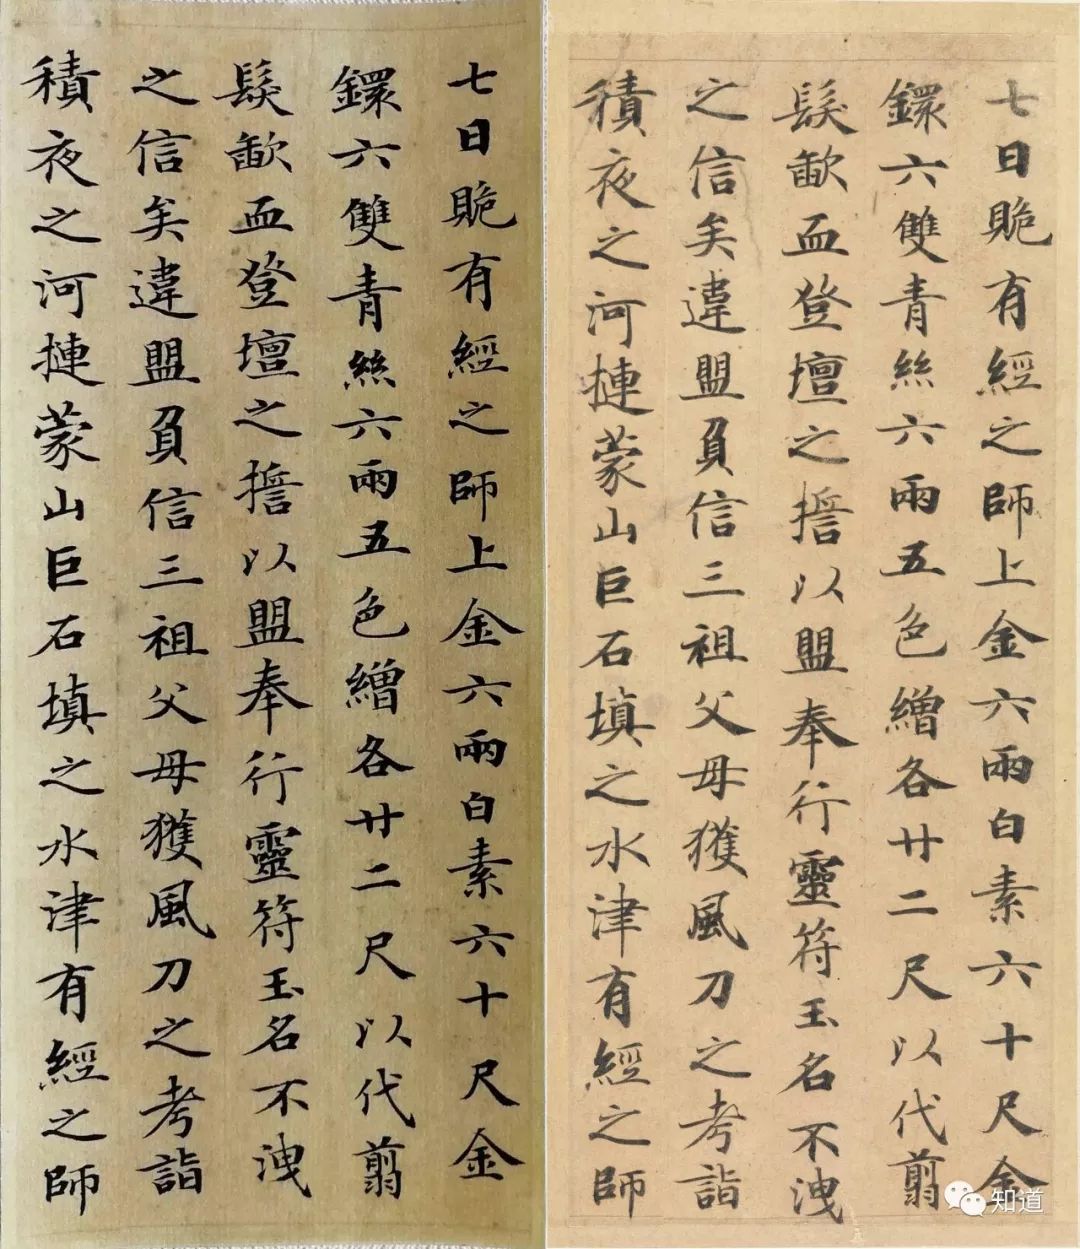 七日貹有經之師上金六兩白素六十尺金
鐶六雙青絲六兩五色繒各廿二尺以代翦
髮歃血登壇之擔以盟奉行靈符玉名不洩
之信矣違盟負信三祖父母獲風刀之考詣
積夜之河摙蒙山巨石填之水津有經之師
七日貹有經之師上金六兩白素六十尺金
鐶六雙青絲六兩五色繒各廿二尺以代翦
髮歃血登壇之擔以盟奉行靈符玉名不洩
之信矣違盟負信三祖父母獲風刀之考詣
積夜之河摙蒙山巨石填之水津有經之師
知道